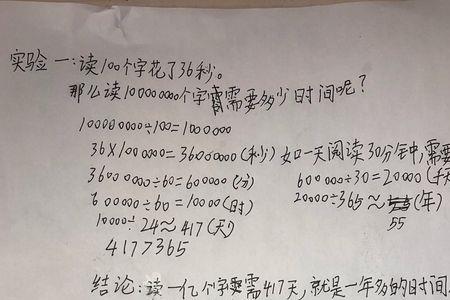 实验一:读100个字花了36秒。
那么读100000000个字需要多少时间呢?
100000000÷100=1000000
36×1000000=36000000(秒) 如一天阅读30分钟,需要
36000000÷60=600000(分) 600000÷30=20000(天)
600000÷60=10000(时) 20000÷365≈55(年)
10000÷24≈417(天)
417>365
结论:读一亿个字需417天,就是一年多的时间